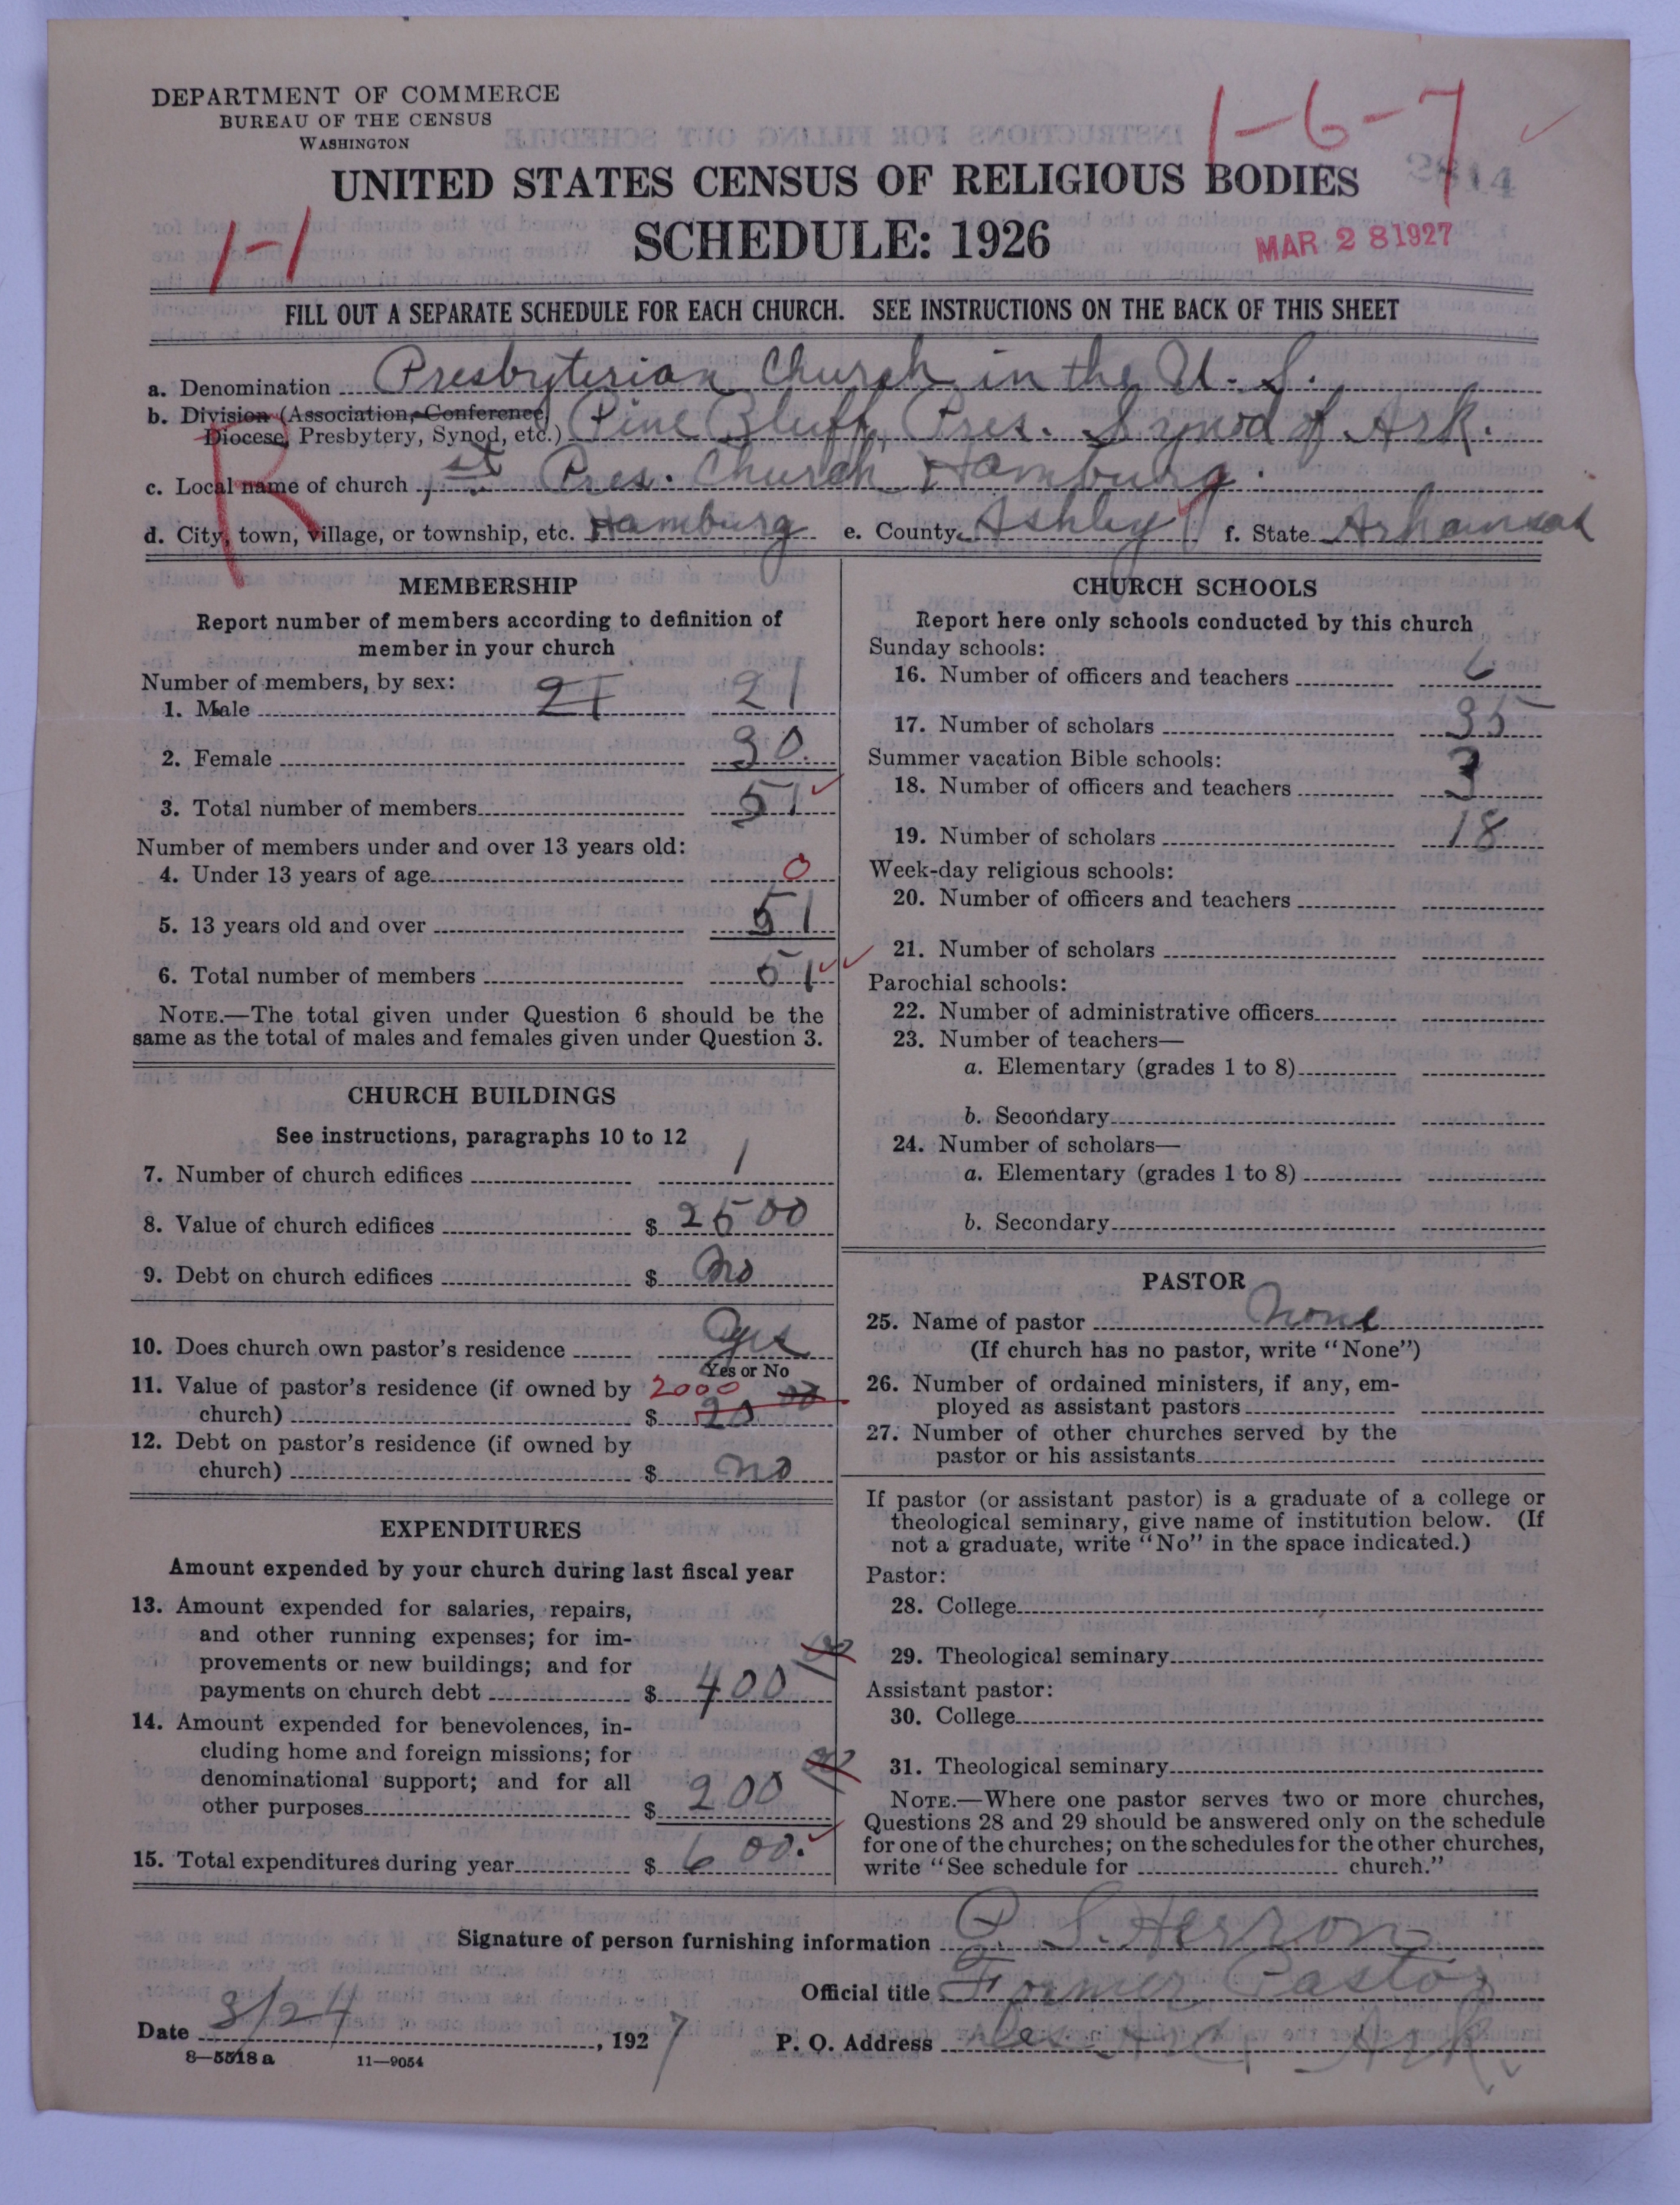 DEPARTMENT OF COMMERCE
BUREAU OF THE CENSUS
WASHINGTON
1-6-7
2814
UNITED STATES CENSUS OF RELIGIOUS BODIES
SCHEDULE: 1926
1-1
MAR 28 1927
FILL OUT A SEPARATE SCHEDULE FOR EACH CHURCH. SEE INSTRUCTIONS ON THE BACK OF THIS SHEET
a. Denomination Presbyterian Church in the U. S.
b. Division (Association, Conference, Diocese, Presbytery, Synod, etc.) Pine Bluff, Pres. Synod of Ark.
R
c. Local name of church 1st Pres. Church Hamburg.
d. City, town, village, or township, etc. Hamburg e. County Ashley f. State Arkansas
MEMBERSHIP
Report number of members according to definition of
member in your church
Number of members, by sex:
1. Male 21 21
2. Female 30.
3. Total number of members 51
Number of members under and over 13 years old:
4. Under 13 years of age 0
5. 13 years old and over 51
6. Total number of members 51
NOTE.—The total given under Question 6 should be the
same as the total of males and females given under Question 3.
CHURCH BUILDINGS
See instructions, paragraphs 10 to 12
7. Number of church edifices 1
8. Value of church edifices $ 2500
9. Debt on church edifices $ no
10. Does church own pastor's residence yes
Yes or No
11. Value of pastor's residence (if owned by 2000
church) $ 20 00
12. Debt on pastor's residence (if owned by
church) $ no
EXPENDITURES
Amount expended by your church during last fiscal year
13. Amount expended for salaries, repairs,
and other running expenses; for im-
provements or new buildings; and for
payments on church debt $ 400 00
14. Amount expended for benevolences, in-
cluding home and foreign missions; for
denominational support; and for all
other purposes $ 200 00
15. Total expenditures during year $ 600.
CHURCH SCHOOLS
Report here only schools conducted by this church
Sunday schools:
16. Number of officers and teachers 6
17. Number of scholars 35
Summer vacation Bible schools:
18. Number of officers and teachers 3
19. Number of scholars 18
Week-day religious schools:
20. Number of officers and teachers
21. Number of scholars
Parochial schools:
22. Number of administrative officers
23. Number of teachers—
a. Elementary (grades 1 to 8)
b. Secondary
24. Number of scholars—
a. Elementary (grades 1 to 8)
b. Secondary
PASTOR
25. Name of pastor None
(If church has no pastor, write "None")
26. Number of ordained ministers, if any, em-
ployed as assistant pastors
27. Number of other churches served by the
pastor or his assistants
If pastor (or assistant pastor) is a graduate of a college or
theological seminary, give name of institution below. (If
not a graduate, write "No" in the space indicated.)
Pastor:
28. College
29. Theological seminary
Assistant pastor:
30. College
31. Theological seminary
NOTE.—Where one pastor serves two or more churches,
Questions 28 and 29 should be answered only on the schedule
for one of the churches; on the schedules for the other churches,
write "See schedule for church."
Signature of person furnishing information P. S. Herron
Official title Former Pastor
Date 3/24, 1927 P. O. Address Des Arc Ark.
8—5518 a 11—9054